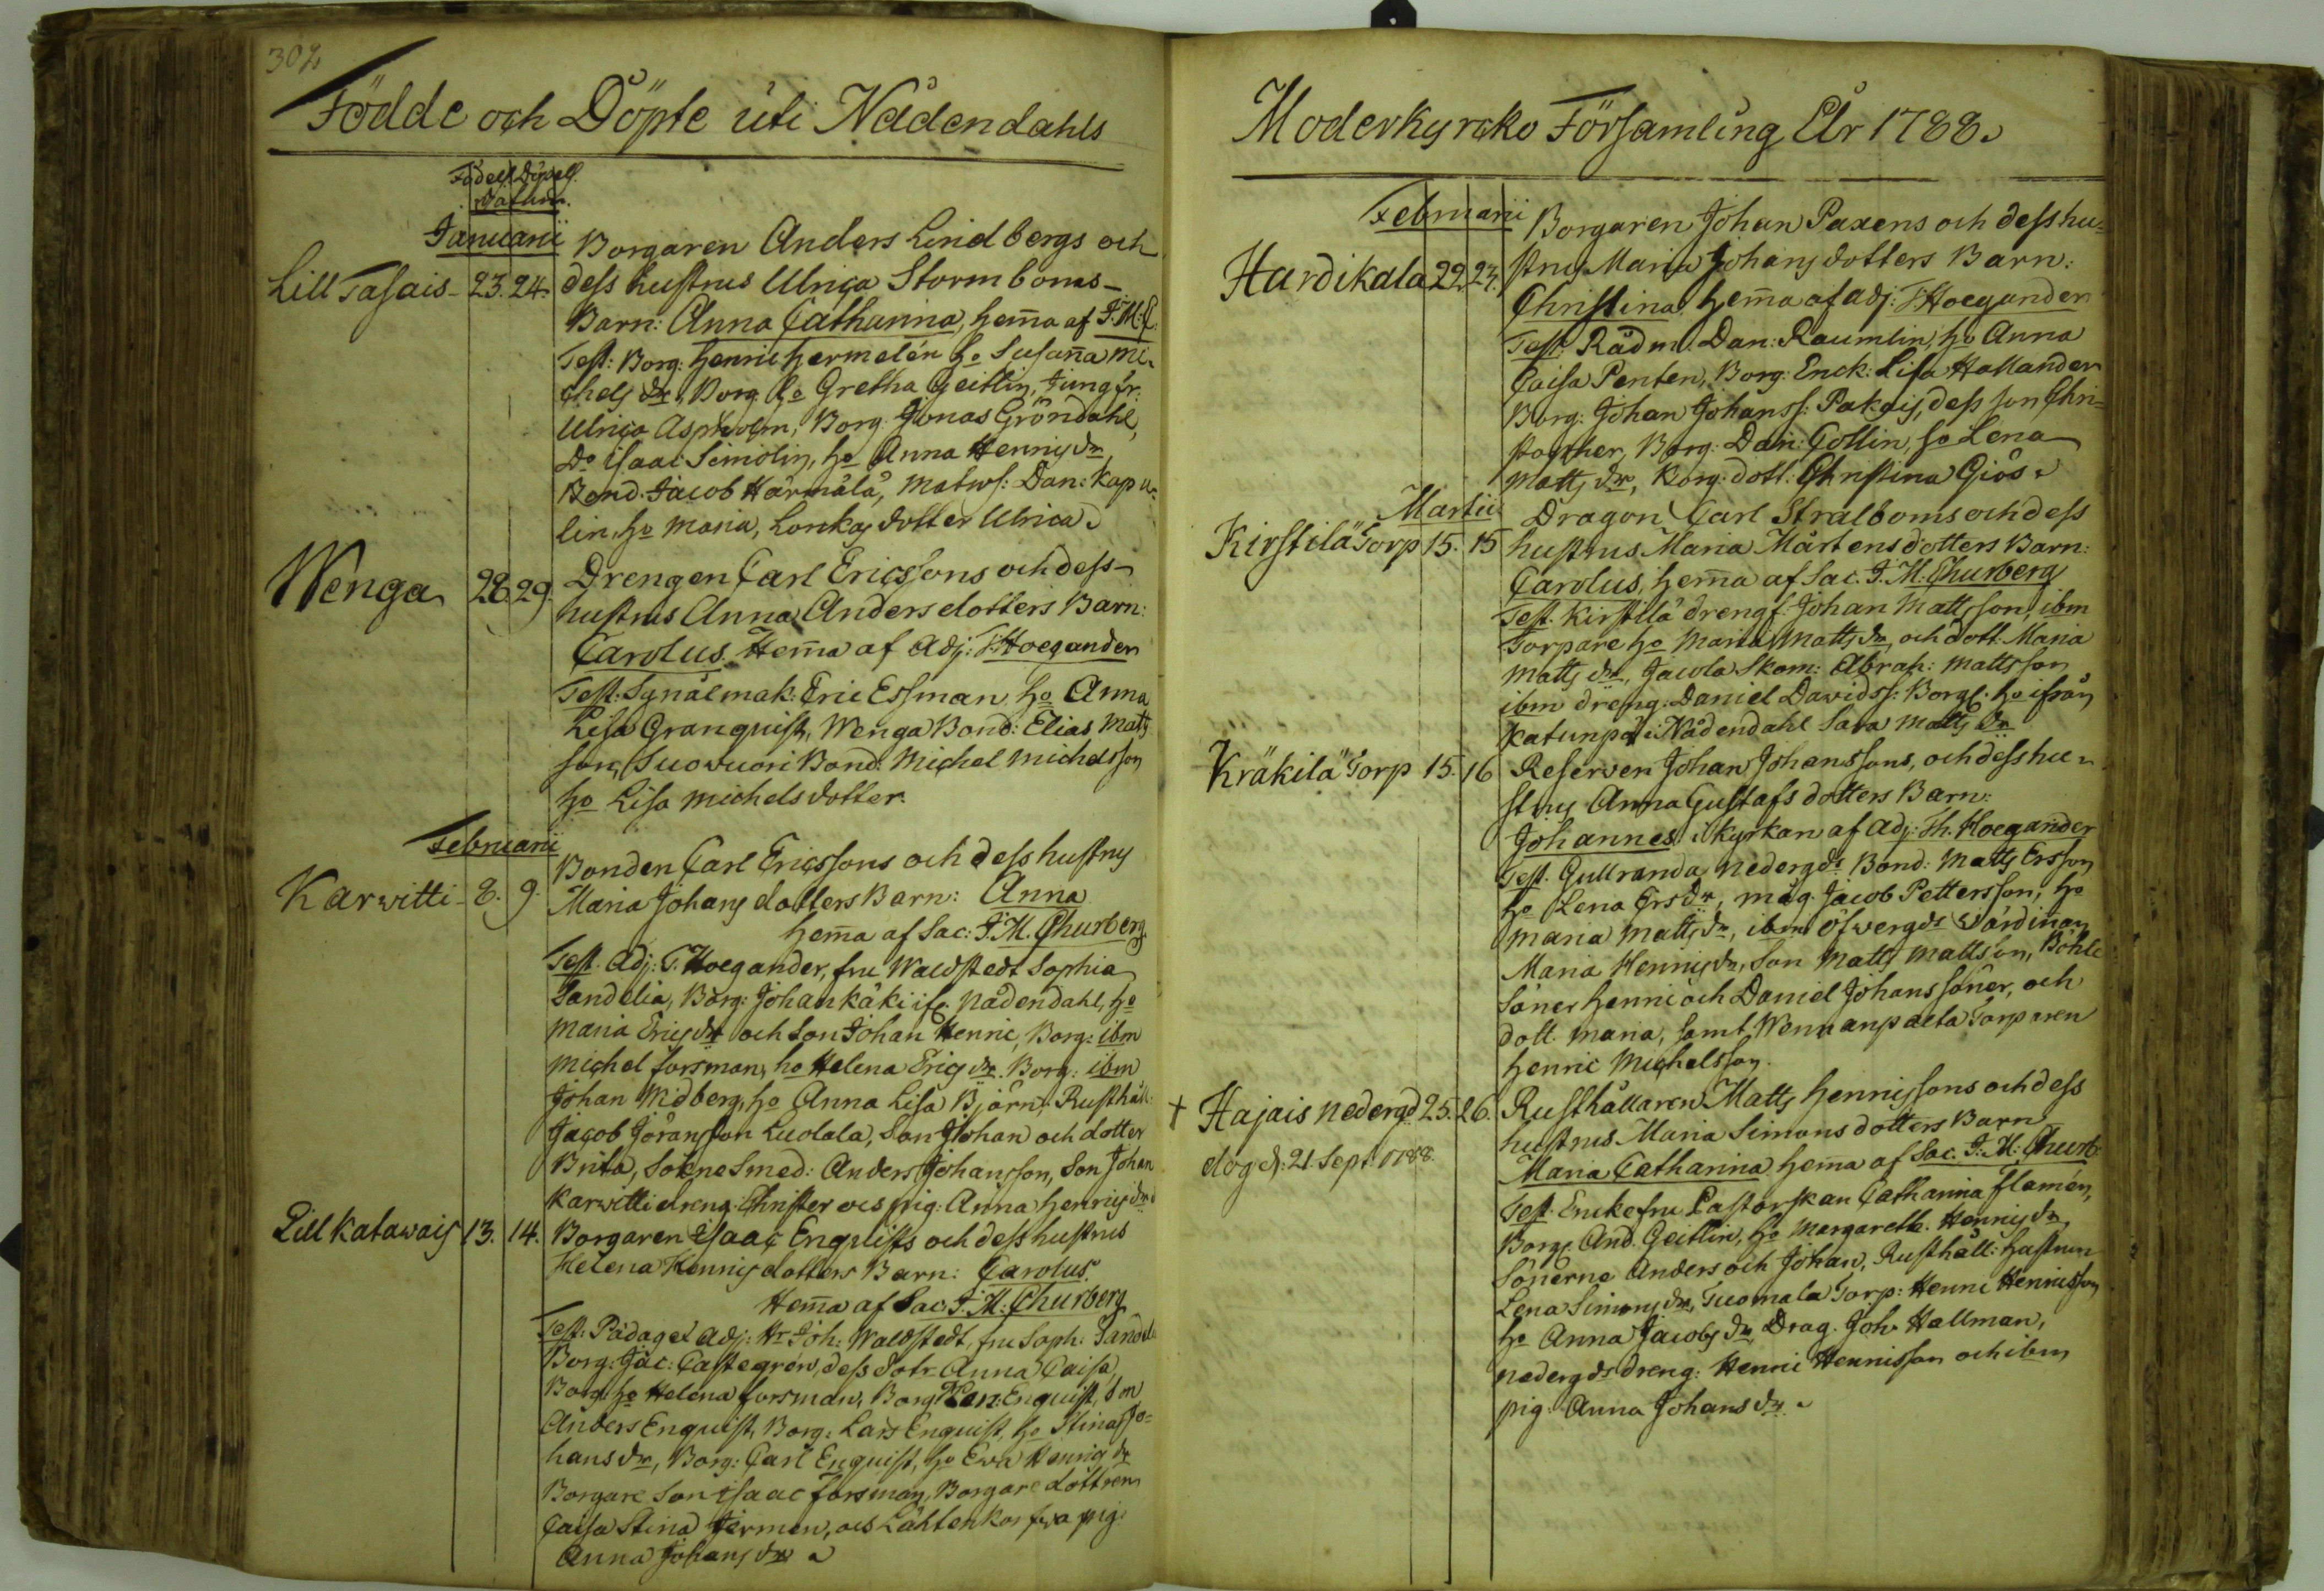 302
Födde och Döpte uti Nådendahls
Födels. Döpels.
Datum.
Januarii
Borgaren Anders Lindbergs och
Lill Tasais 23. 24. dess hustrus Ulrica Stormboms
Barn: Anna Catharina, hema af J. M. C.
Test: Borg: Henric Hermelén ho Susana Mi-
chels dr, Borg. ho Gretha Geitlin, Jungfr:
Ulrica Aspholm, Borg. Jonas Gröndahl,
Do Isaac Simolin, ho Anna Henrics dr
Bond. Jacob Härmälä, Matros: Dan: Kapu-
lin, ho Maria, dotter Ulrica.
Wenga 28. 29. Drengen Carl Ericssons och dess
hustrus Anna Andersdotters Barn:
Carolus. Hema af Adj: T. Hoegander
Test. Synålmak: Eric Essman, ho Anna
Lisa Granquist, Wenga Bond: Elias Matts
son, Suowuori Bond: Michel Michelsson
ho Lisa Michelsdotter.
Februarii
Bonden Carl Ericssons och dess hustrus
Karwitti 8. 9. Maria Johans dotters Barn: Anna
hema af Sac: J. M. Churberg.
Test. Adj: T. Hoegander, fru Waldstedt Sophia
Sandelia, Borg: Johan Käki if. Nådendahl, ho
Maria Erics dr och Son Johan Henric, Borg: ibm
Michel Forsman, ho Helena Erics dr. Borg: ibm
Johan Widberg, ho Anna Lisa Björn. Rusthåll.
Jacob Jöransson Luolala, Son Johan och dotter
Brita, Sokne Smed: Anders Johansson, Son Johan
Karwitti dreng: Christer och pig: Anna Henrics dr
Lill Katawais 13. 14. Borgaren Isaac Enquists och dess hustrus
Helena Henrics dotters Barn: Carolus.
Hema af Sac. J. M: Churberg
Test: Pädagog Adj: Hr Joh: Waldstedt, fru Soph: Sandel:
Borg: Jac: Castegrén, dess dotr Anna Caisa,
Borg: ho Helena Forsman, Borg: Enquist, Son
Anders Enquist, Borg: Lars Enquist, ho Stina Jo=
hans dr, Borg: Carl Enquist, ho Ewa Henrics dr
Borgare Son Isaac Forsman, Borgare dottren
Caisa Stina och pig:
Anna Johans dr
Moderkyrcko Församling År 1788.
Februarii
Borgaren Johan Paxens och dess hu=
Hardikala 22. 23. strus Maria Johans dotters Barn:
Christina. hema af adj: T. Hoegander
Test: Rådm. Dan: Raumlin, ho Anna
Caisa Penten, Borg: Enck: Lisa Hallander
Borg: Johan Johanss: dess son Chri=
stopher, Borg: Dan: Gollin, ho Lena
Matts dr, Borg: dott: Christina Giös.
Martii
Dragon Carl Stralboms och dess
Kirstilä Torp 15. 15 hustrus Maria Mårtensdotters Barn:
Carolus, hema af Sac. J. M. Churberg
Test. Kirstilä drengs Johan Mattsson, ibm
Torpare ho Maria Matts dr, och dott. Maria
Matts dr, Skom: Abrah: Mattsson
ibm dreng: Daniel Davidss: Borgs ho ifrån
Katunpä i Nådendahl Sara Matts dr
Kräkilä Torp 15. 16 Reserven Johan Johanssons, och dess hu=
strus Anna Gustafsdotters Barn:
Johannes i kyrkan af Adj: Th. Hoegander
Test. Gullranda Nedergds Bond: Matts Ersson
ho Lena Ers dr, måg. Jacob Pettersson, ho
Maria Matts dr, ibm Öfwergds
Maria Henrics dr, Son Matts Mattsson, Böhle
Söner Henric och Daniel Johanssöner, och
dott. Maria, samt Torparen
Henric Michelsson.
† Hajais Nedergd 25. 26. Rusthållaren Matts Henricssons och dess
dog d. 21 Sept 1788. hustrus Maria Simonsdotters Barn
Maria Catharina hema af Sac. J. M: Churb.
Test. Enckefru Pastorskan Catharina Flamén,
Borgs And. Geitlin, ho Margareth. Henrics dr,
Sönerne Anders och Johan, Rusthåll: hustrun
Lena Simons dr, Tuomala Torp: Henric Henricsson
ho Anna Jacobs dr, Drag. Joh. Hallman,
Nedergds dreng: Henric Henricsson och ibm
pig: Anna Johans dr.